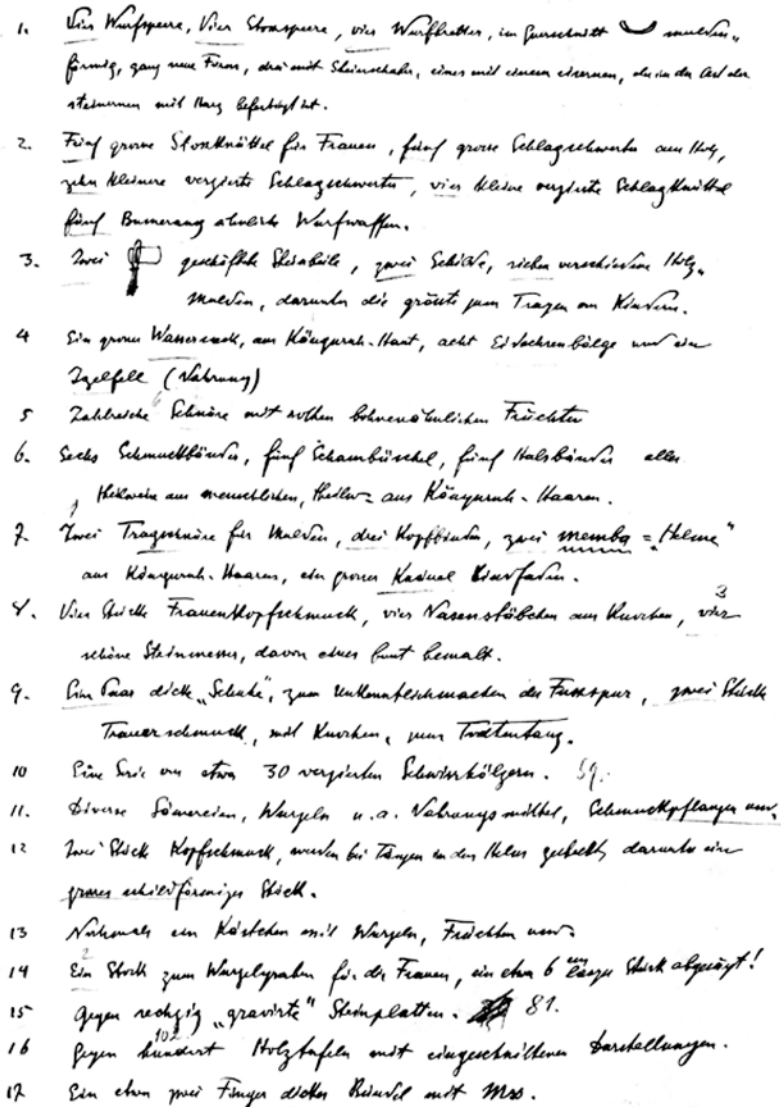 1. Vier Wurfspeere, Vier Stossspeere, vier Wurfbretter, im Querschnitt mulden„
förmig, ganz neue Form, drei mit Steinschaber, eines mit einem eisernen, der in der Art der
steinernen mit Harz befestigt ist.
2. Fünf grosse Stossknüttel für Frauen, fünf grosse Schlagschwerter aus Holz,
zehn kleinere verzierte Schlagschwerter, vier kleine verzierte Schlagknüttel
fünf Bumerang ähnliche Wurfwaffen.
3. Zwei geschäftete Steinbeile, zwei Schilde, sieben verschiedene Holz„
mulden, darunter die grösste zum Tragen von Kindern.
4 Ein grosser Wassersack, aus Känguruh-Haut, acht Eidechsenbälge und ein
Igelfell (Nahrung)
5 Zahlreiche Schnüre mit rothen bohnenähnlichen Früchten
6. Sechs Schmuckbänder, fünf Schambüschel, fünf Halsbänder alles
theilweise aus menschlichen, theilw= aus Känguruh-Haaren.
7. Zwei Tragschnüre für Mulden, drei Kopfbinden, zwei memba = „Helme"
aus Känguruh-Haaren, ein grosser Knäuel Bindfaden.
8. Vier Stücke Frauenkopfschmuck, vier Nasenstäbchen aus Knochen, vier 3
schöne Steinmesser, davon eines bunt bemalt.
9. Ein Paar dicke „Schuhe", zum Unkenntlichmachen der Fussspur, zwei Stücke
Trauerschmuck, mit Knochen, zum Todtentanz.
10 Eine Serie von etwa 30 verzierten Schwirrhölzern. 59.
11. Diverse Sämereien, Wurzeln u.a. Nahrungsmittel, Schmuckpflanzen usw.
12 Zwei Stück Kopfschmuck, werden bei Tänzen in den Helm gesteckt, darunter ein
grosses schildförmiges Stück.
13 Nochmals ein Kästchen mit Wurzeln, Früchten usw.
14 Ein Stock zum Wurzelgraben für die Frauen, ein etwa 6 cm langes Stück abgesägt!
15 Gegen sechzig „gravirte" Steinplatten. 81.
16 Gegen hundert 102 Holztafeln mit eingeschnittenen Darstellungen.
17 Ein etwa zwei Finger dickes Bündel mit Mss.